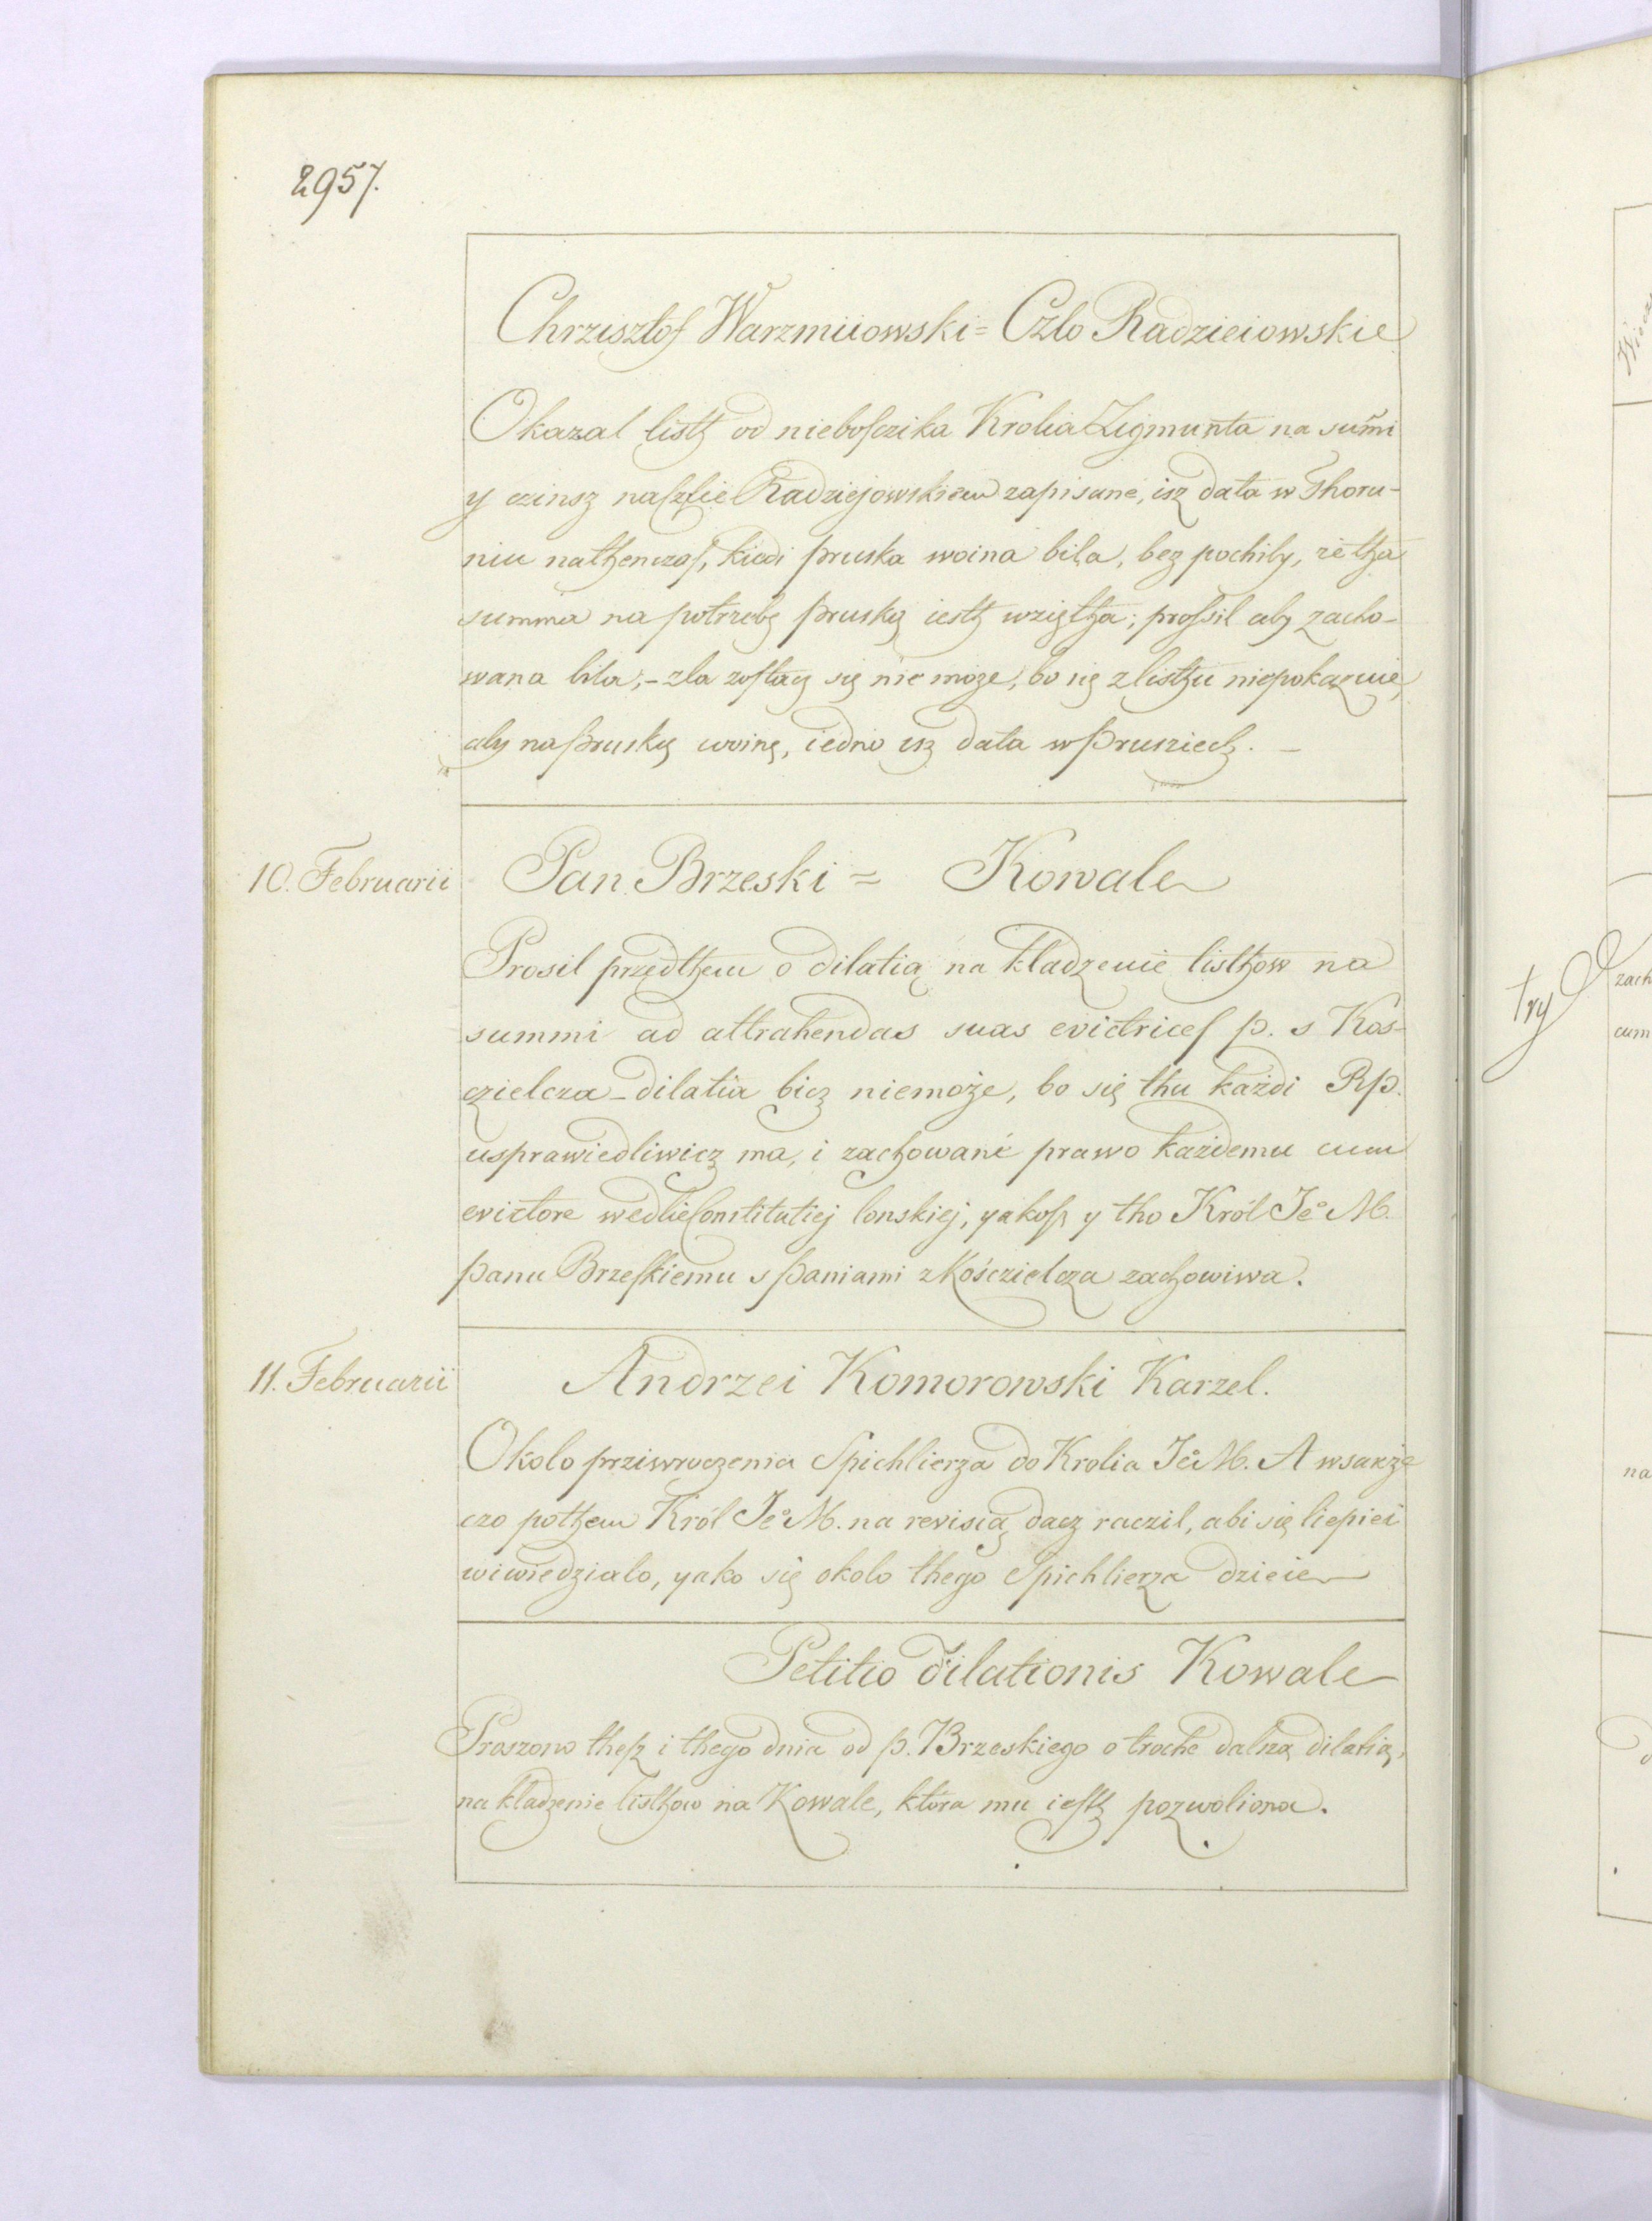 2957.
Chrzisztof Warzmiiowski = Czlo Radzieiowskie
Okazal listh od nieboſczika Krolia Zigmunta na sum̃i
y czinsz na Czlie Radziejowskiem zapisane, isz data w Thoru-
niu nathenczaſ, kiedi pruska woina bila, bez pochiby, ze tha
summa na potrzebę pruską iesth wziętha; proſsil aby zacho-
wana bila; - zla zoſtacz się nie może, bo się z listhu niepokazuie,
aby na pruską woinę, iedno isz data w Prusziech. -
10. Februarii
Pan Brzeski = Kowale
Prosil przedthem o dilatią na kladzenie listhow na
summi ad attrahendas suas evictriceſ p. s Kos-
czielcza - dilatia bicz niemoże, bo się thu każdi Rp.
usprawiedliwicz ma, i zachowanie prawo każdemu cum
evictore wedlie Constitutiej lonskiej, yakoſz y tho Król Je° M.
panu Brzeſkiemu s paniami z Kościelcza zachowiwa.
11. Februarii
Andrzei Komorowski Karzel.
Okolo przivroczenia Spichlierza do Krolia Je° M. A wsakże
czo pothem Król Je° M. na revisią dacz raczil, abi się liepiei
wiwiedzialo, yako się okolo thego Spichlierza dzieie
Petitio dilationis Kowale
Proszono theſz i thego dnia od p. Brzeskiego o troche dalszą dilatią,
na kladzenie listhow na Kowale, która mu ieſth pozwoliona.
try
zach
cum
na